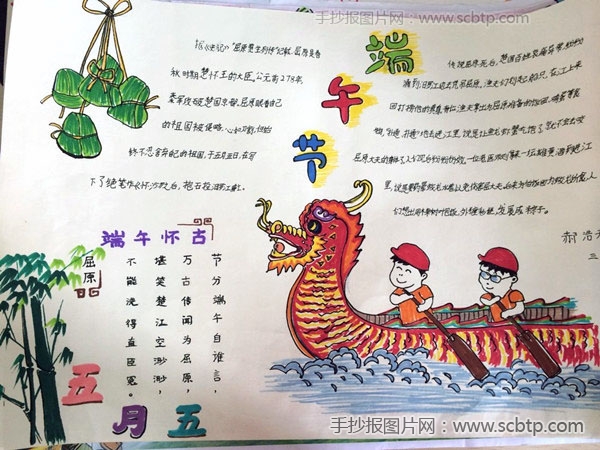 手抄报图片网：www.scbtp.com
端午节
据《史记》"屈原贾生列传"记载,屈原是春
秋时期楚怀王的大臣。公元前278年,
秦军攻破楚国京都。屈原眼看自己
的祖国被侵略,心如刀割,但始
终不忍舍弃自己的祖国,于五月五日,在写
下了绝笔作《怀沙》之后,抱石投汨罗江
传说屈原死后,楚国百姓哀痛异常,纷纷
涌到汨罗江边去凭吊屈原。渔夫们划起船只,在江上来
回打捞他的真身。有位渔夫拿出为屈原准备的饭团、鸡蛋等食
物,"扑通、扑通"地丢进江里,说是让鱼龙虾蟹吃饱了,就不会去咬
屈大夫的身体了。人们见后纷纷仿效。一位老医师则拿来一坛雄黄酒倒进江
里,说是要药晕蛟龙水兽,以免伤害屈大夫。后来为怕饭团为蛟龙所食,人
们想出用楝树叶包饭,外缠彩丝,发展成粽子。
郝浩
三
端午怀古
屈原
节分端午自谁言,
万古传闻为屈原,
堪笑楚江空渺渺,
不能洗得直臣冤。
五月五
手抄报图片网：www.scbtp.com